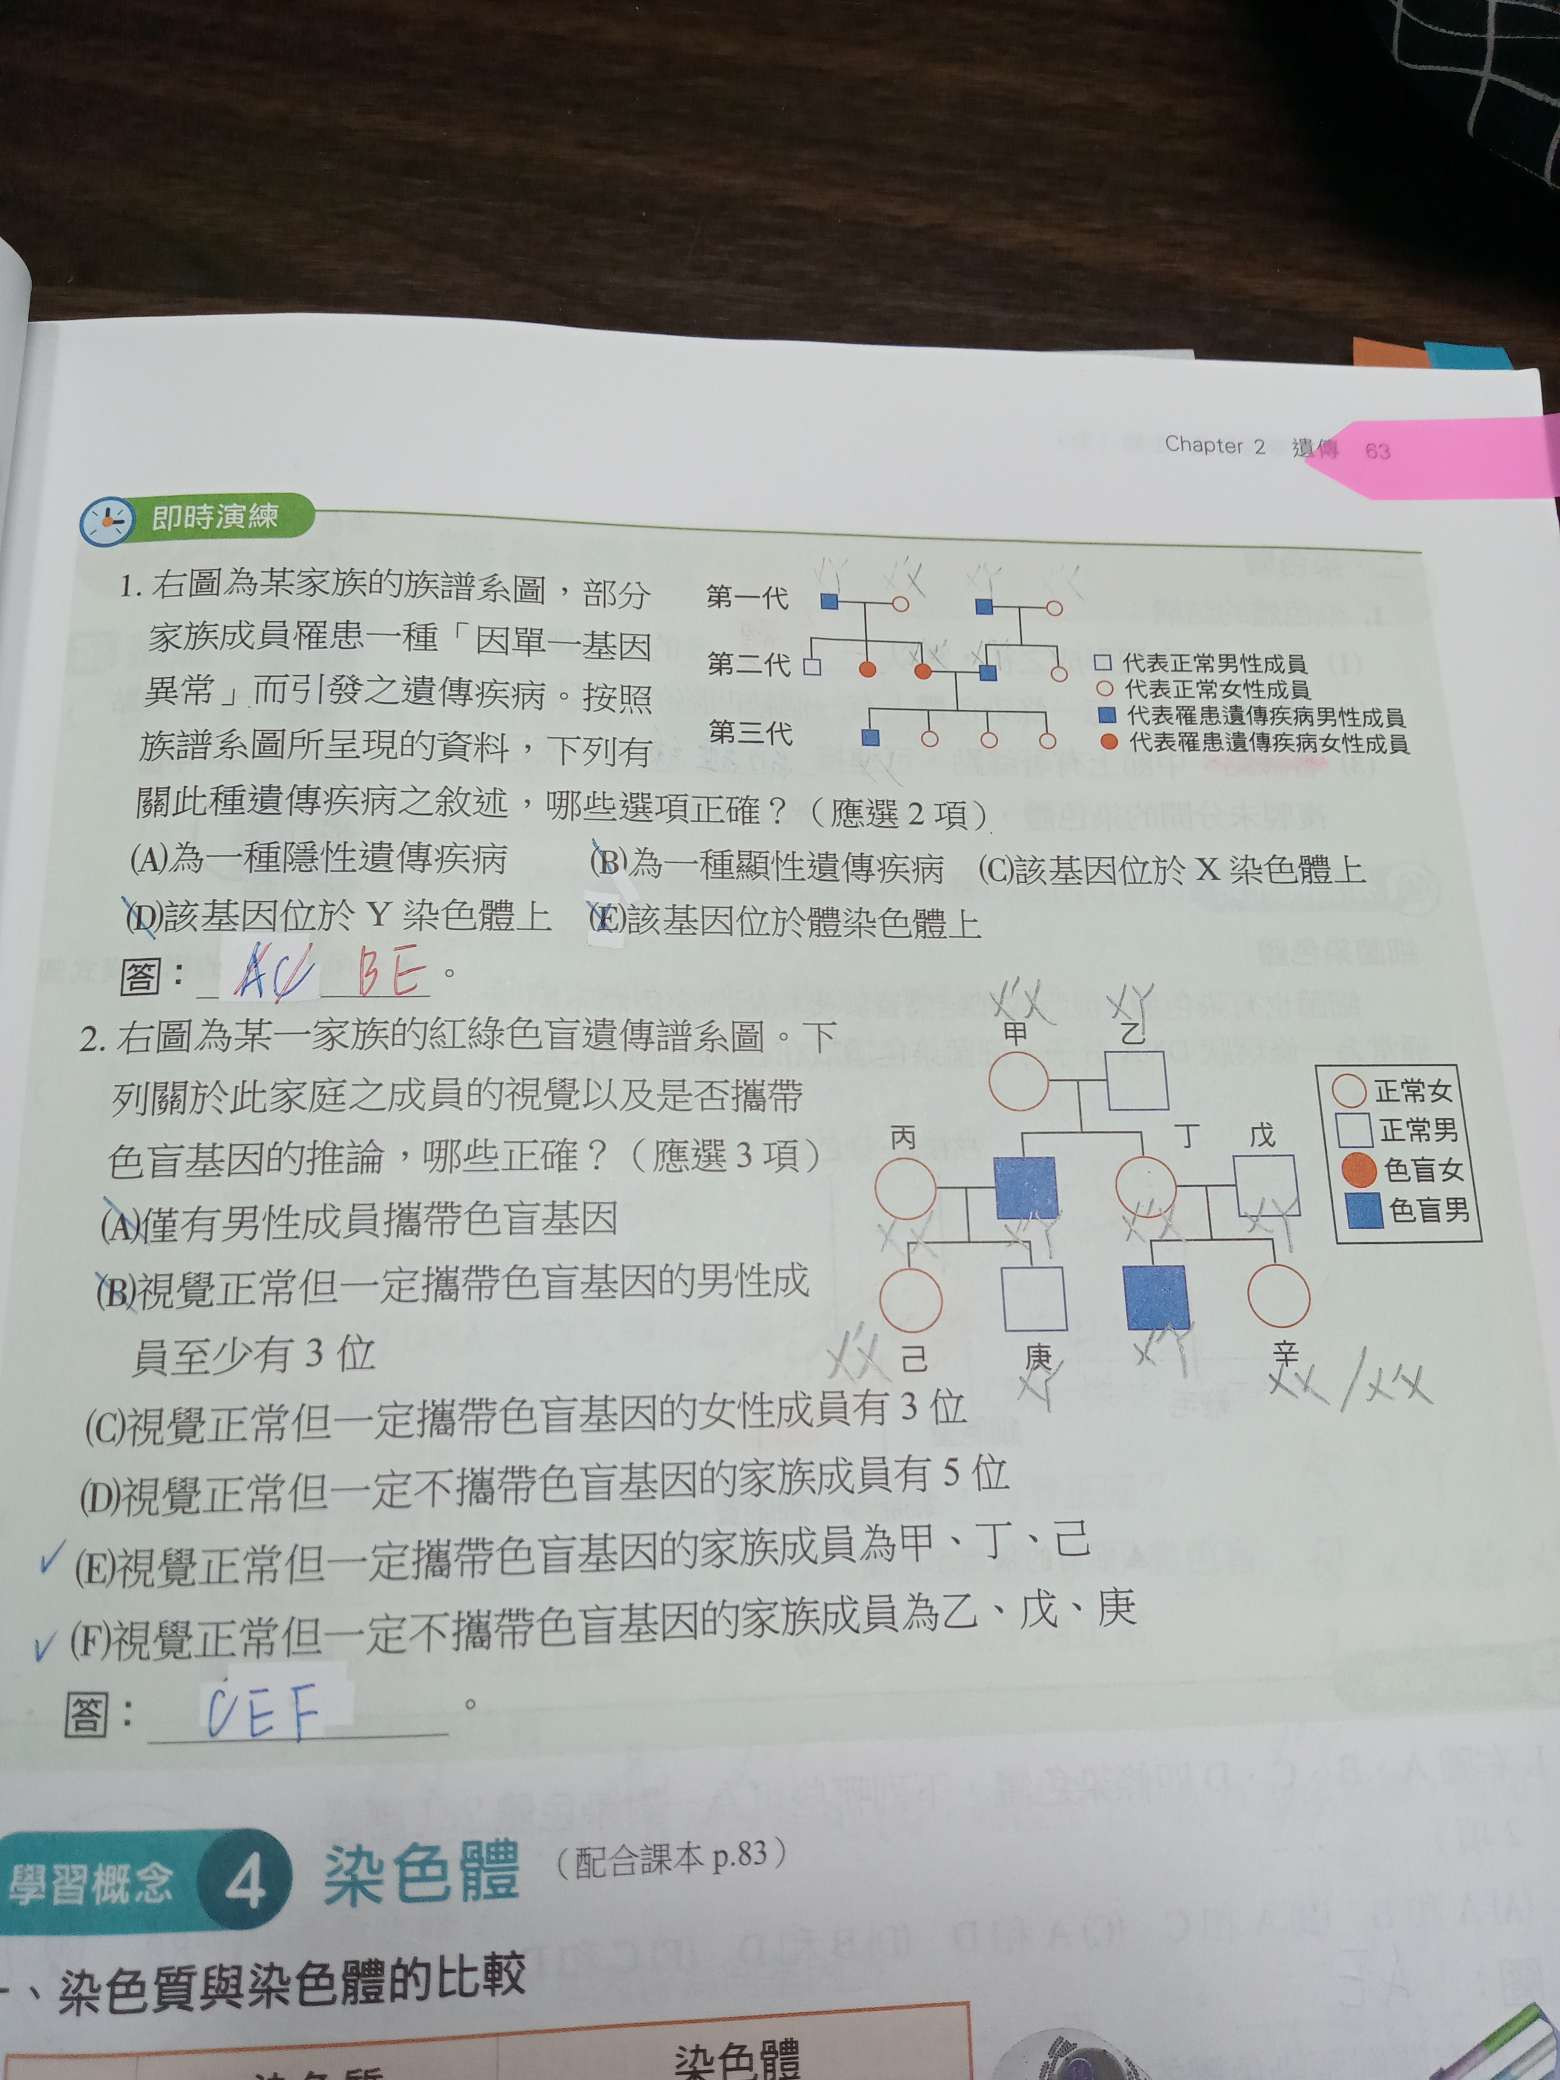 Chapter 2 遺傳 63
即時演練
1. 右圖為某家族的族譜系圖，部分
家族成員罹患一種「因單一基因
異常」而引發之遺傳疾病。按照
族譜系圖所呈現的資料，下列有
關此種遺傳疾病之敘述，哪些選項正確？（應選 2 項）
第一代
第二代
第三代
代表正常男性成員
代表正常女性成員
代表罹患遺傳疾病男性成員
代表罹患遺傳疾病女性成員
(A)為一種隱性遺傳疾病 (B)為一種顯性遺傳疾病 (C)該基因位於 X 染色體上
(D)該基因位於 Y 染色體上 (E)該基因位於體染色體上
答： AC BE 。
2. 右圖為某一家族的紅綠色盲遺傳譜系圖。下
列關於此家庭之成員的視覺以及是否攜帶
色盲基因的推論，哪些正確？（應選 3 項）
(A)僅有男性成員攜帶色盲基因
(B)視覺正常但一定攜帶色盲基因的男性成
員至少有 3 位
(C)視覺正常但一定攜帶色盲基因的女性成員有 3 位
(D)視覺正常但一定不攜帶色盲基因的家族成員有 5 位
(E)視覺正常但一定攜帶色盲基因的家族成員為甲、丁、己
(F)視覺正常但一定不攜帶色盲基因的家族成員為乙、戊、庚
X'X XY
甲 乙
丙 丁 戊
XX X'Y X'X XY
己 庚 辛
X'X XY X'Y XX / X'X
正常女
正常男
色盲女
色盲男
答： CEF 。
學習概念 4 染色體 （配合課本 p.83）
一、染色質與染色體的比較
染色質 染色體